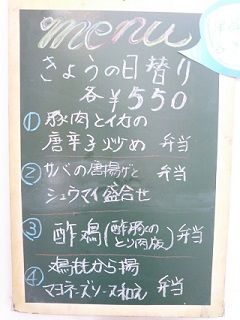 menu
きょうの日替り
各¥550
① 豚肉とイカの
唐辛子炒め 弁当
② サバの唐揚げと 弁当
シュウマイ盛合せ
③ 酢鶏(酢豚の
とり肉版) 弁当
④ 鶏ももから揚
マヨネーズソース和え 弁当